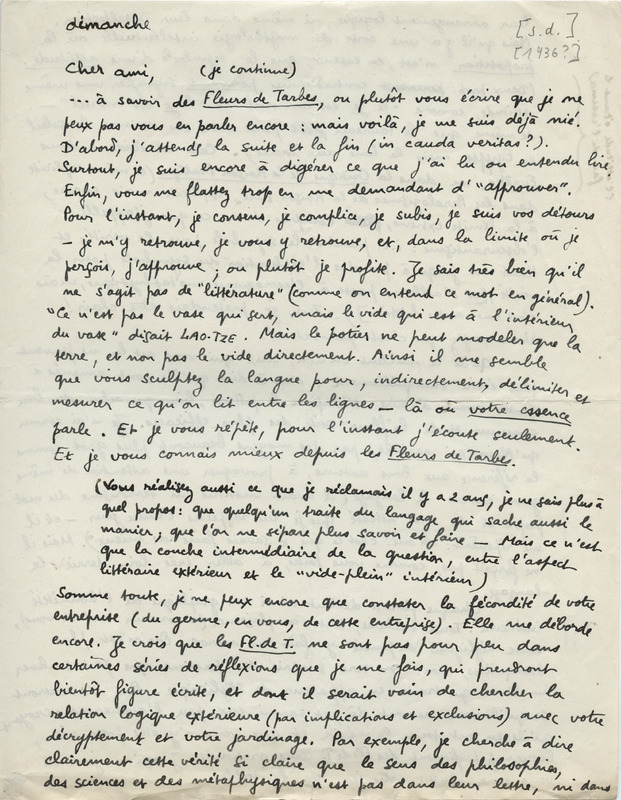 dimanche
[s.d.]
[1936?]
Cher ami, (je continue)
... à savoir des Fleurs de Tarbes, ou plutôt vous écrire que je ne
peux pas vous en parler encore : mais voilà, je me suis déjà nié.
D'abord, j'attends la suite et la fin (in cauda veritas?).
Surtout, je suis encore à digérer ce que j'ai lu ou entendu lire.
Enfin, vous me flattez trop en me demandant d'"approuver".
Pour l'instant, je consens, je complice, je subis, je suis vos détours
– je m'y retrouve, je vous y retrouve, et, dans la limite où je
perçois, j'approuve ; ou plutôt je profite. Je sais très bien qu'il
ne s'agit pas de "littérature" (comme on entend ce mot en général).
"Ce n'est pas le vase qui sert, mais le vide qui est à l'intérieur
du vase" disait LAO-TZE. Mais le potier ne peut modeler que la
terre, et non pas le vide directement. Ainsi il me semble
que vous sculptez la langue pour, indirectement, délimiter et
mesurer ce qu'on lit entre les lignes – là où votre essence
parle. Et je vous répète, pour l'instant j'écoute seulement.
Et je vous connais mieux depuis les Fleurs de Tarbes.
(Vous réalisez aussi ce que je réclamais il y a 2 ans, je ne sais plus à
quel propos: que quelqu'un traite du langage qui sache aussi le
manier; que l'on ne sépare plus savoir et faire – Mais ce n'est
que la couche intermédiaire de la question, entre l'aspect
littéraire extérieur et le "vide-plein" intérieur)
Somme toute, je ne peux encore que constater la fécondité de votre
entreprise (du germe, en vous, de cette entreprise). Elle me déborde
encore. Je crois que les Fl. de T. ne sont pas pour peu dans
certaines séries de réflexions que je me fais, qui prendront
bientôt figure écrite, et dont il serait vain de chercher la
relation logique extérieure (par implications et exclusions) avec votre
décryptement et votre jardinage. Par exemple, je cherche à dire
clairement cette vérité si claire que le sens des philosophies,
des sciences et des métaphysiques n'est pas dans leur lettre, ni dans